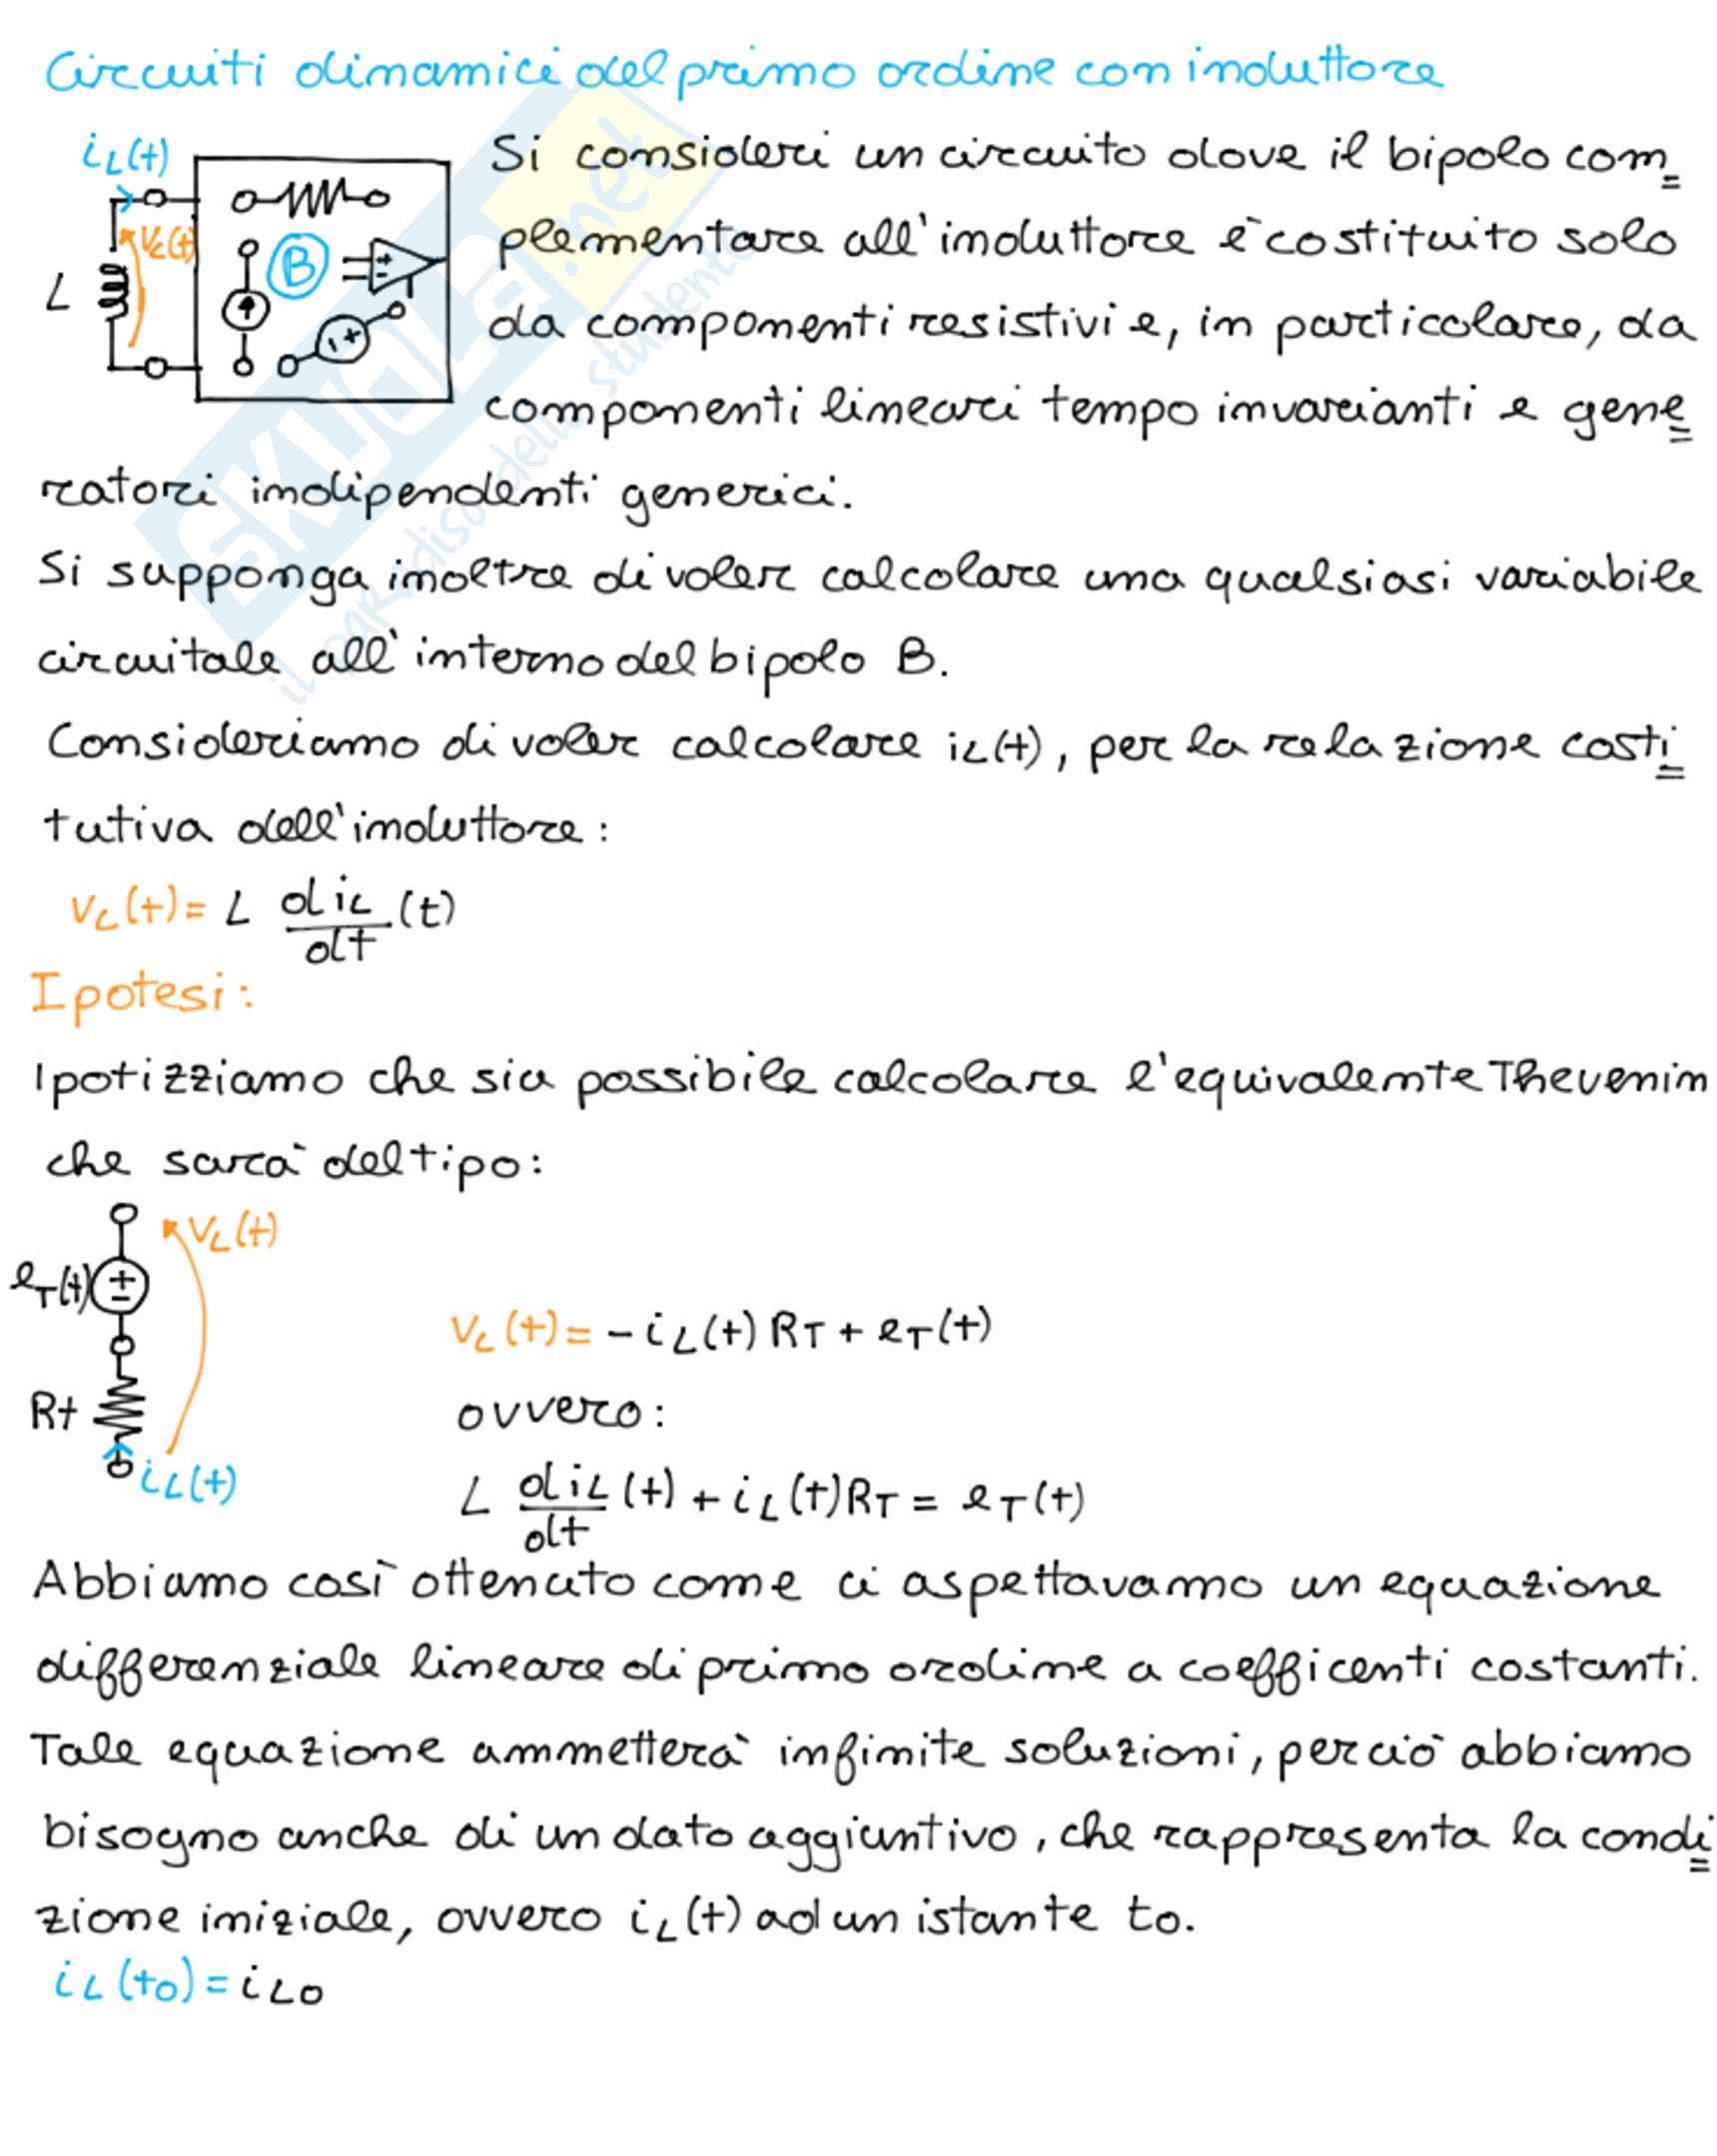 Circuiti dinamici del primo ordine con induttore
iL(t)
Si consideri un circuito dove il bipolo com
VL(t)
plementare all'induttore è costituito solo
B
L
da componenti resistivi e, in particolare, da
componenti lineari tempo invarianti e gene
ratori indipendenti generici.
Si supponga inoltre di voler calcolare una qualsiasi variabile
circuitale all'interno del bipolo B.
Consideriamo di voler calcolare iL(t), per la relazione costi
tutiva dell'induttore:
VL(t) = L diL/dt (t)
Ipotesi:
Ipotizziamo che sia possibile calcolare l'equivalente Thevenin
che sarà del tipo:
VL(t)
eT(t)
VL(t) = -iL(t) RT + eT(t)
Rt
ovvero:
iL(t)
L diL/dt (t) + iL(t)RT = eT(t)
Abbiamo così ottenuto come ci aspettavamo un equazione
differenziale lineare di primo ordine a coefficenti costanti.
Tale equazione ammetterà infinite soluzioni, perciò abbiamo
bisogno anche di un dato aggiuntivo, che rappresenta la condi
zione iniziale, ovvero iL(t) ad un istante to.
iL(to) = iLo
SKUOLA.net
il paradiso dello studente